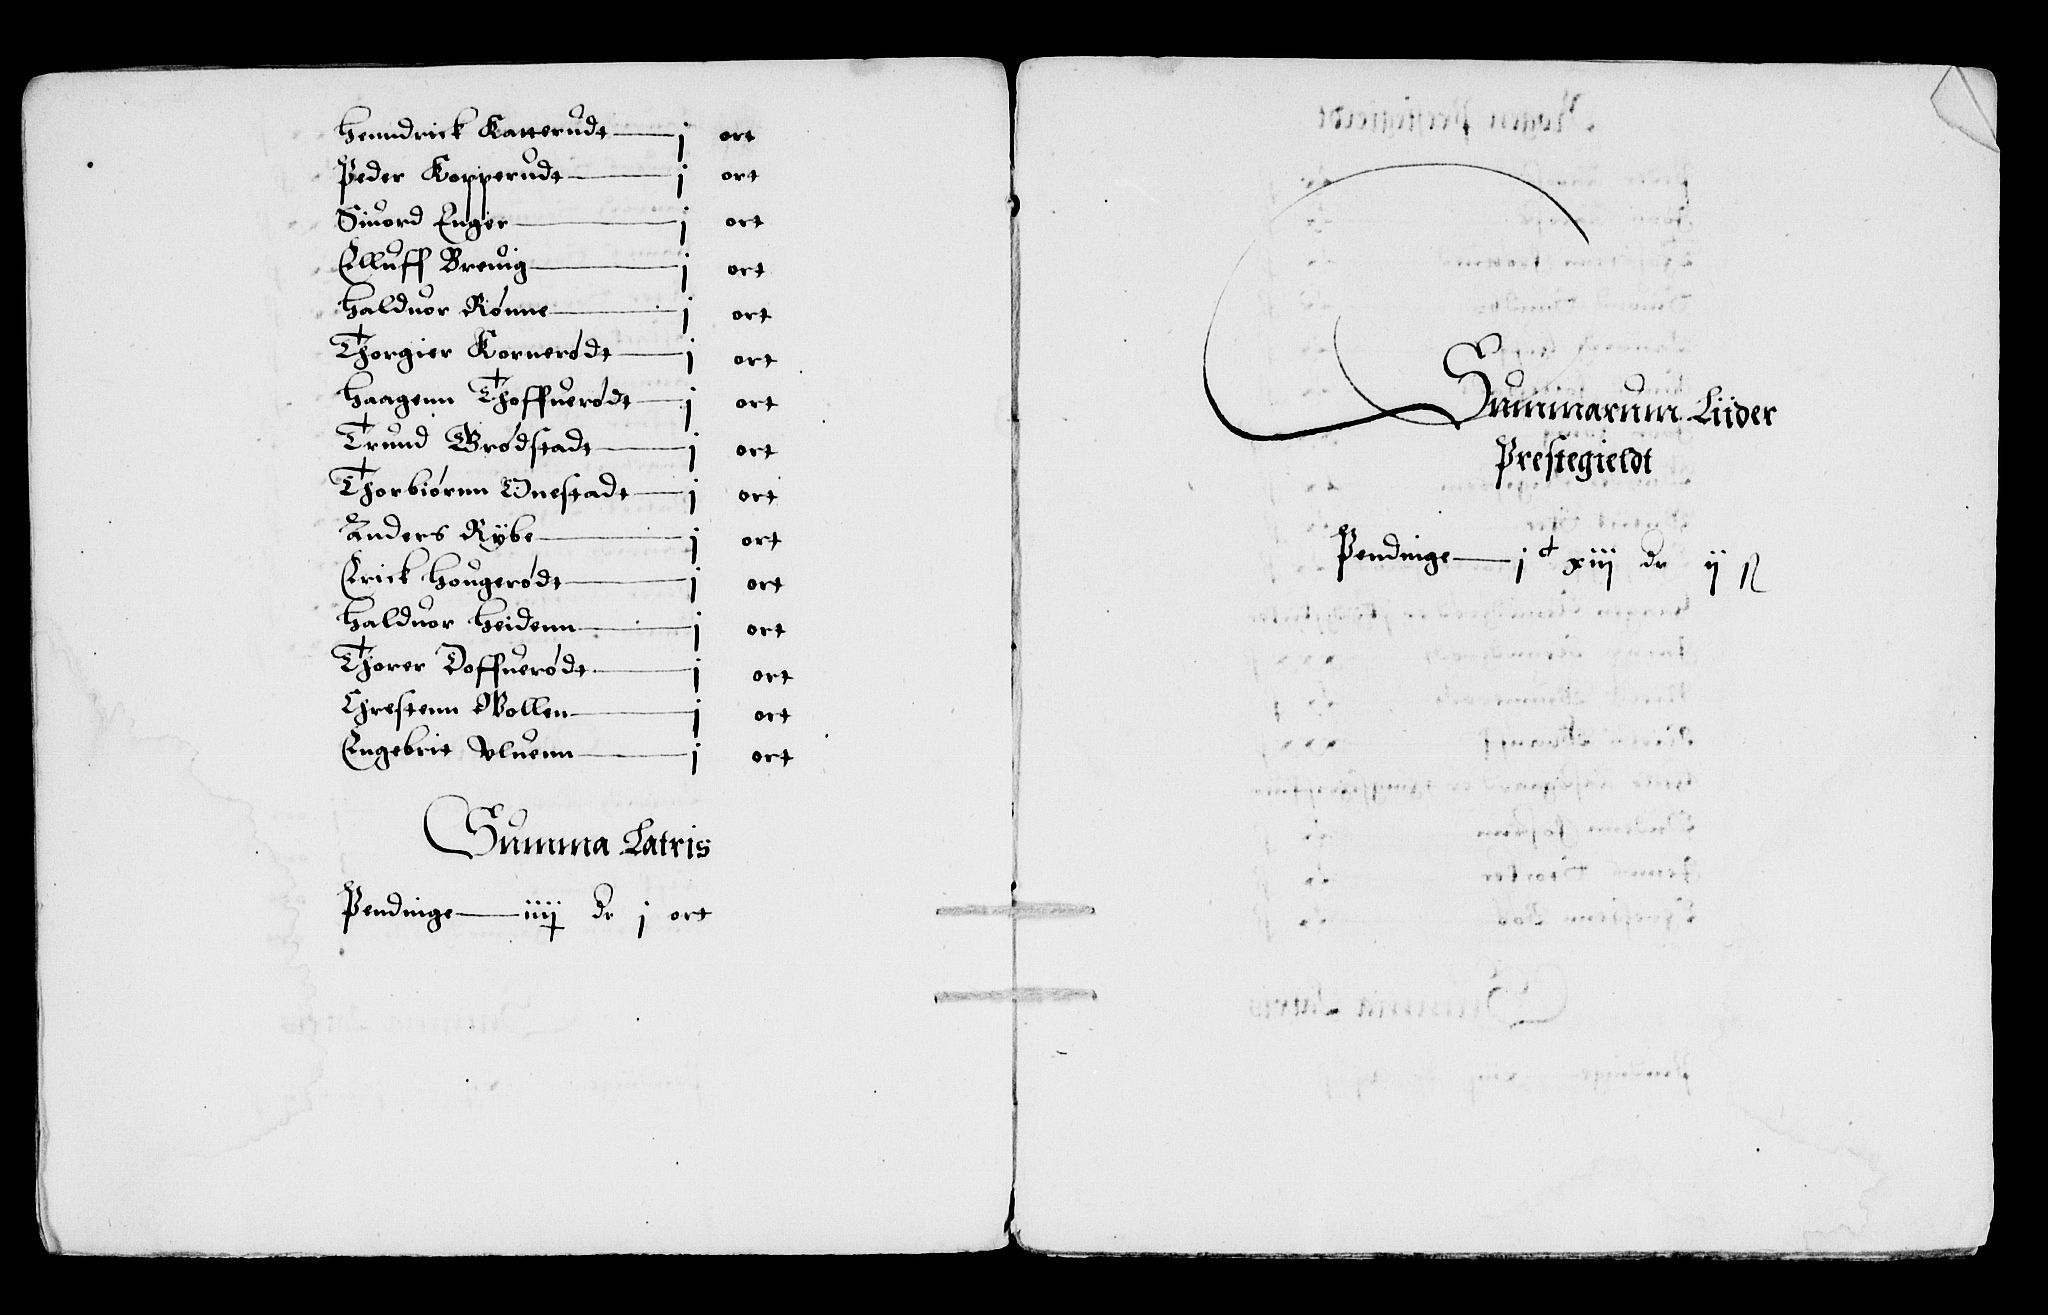 Henndrick Katterudt — j ort
Peder Kopperudt — j ort
Siuord Enger — j ort
Olluff Breuig — j ort
Halduor Rønne — j ort
Thorgier Kornerødt — j ort
Haagenn Thoffuerødt — j ort
Trund Brødstadt — j ort
Thorbiørnn Onestadt — j ort
Anders Rÿbe — j ort
Erick Hougerødt — j ort
Halduor Heidenn — j ort
Thorer Doffuerødt — j ort
Chrestenn Wollen — j ort
Engebrit Vluenn — j ort
Summa Latris
Pendinge — iiij dr j ort
Summarum Liider
Prestegieldt
Pendinge — j c xiij dr ij ß